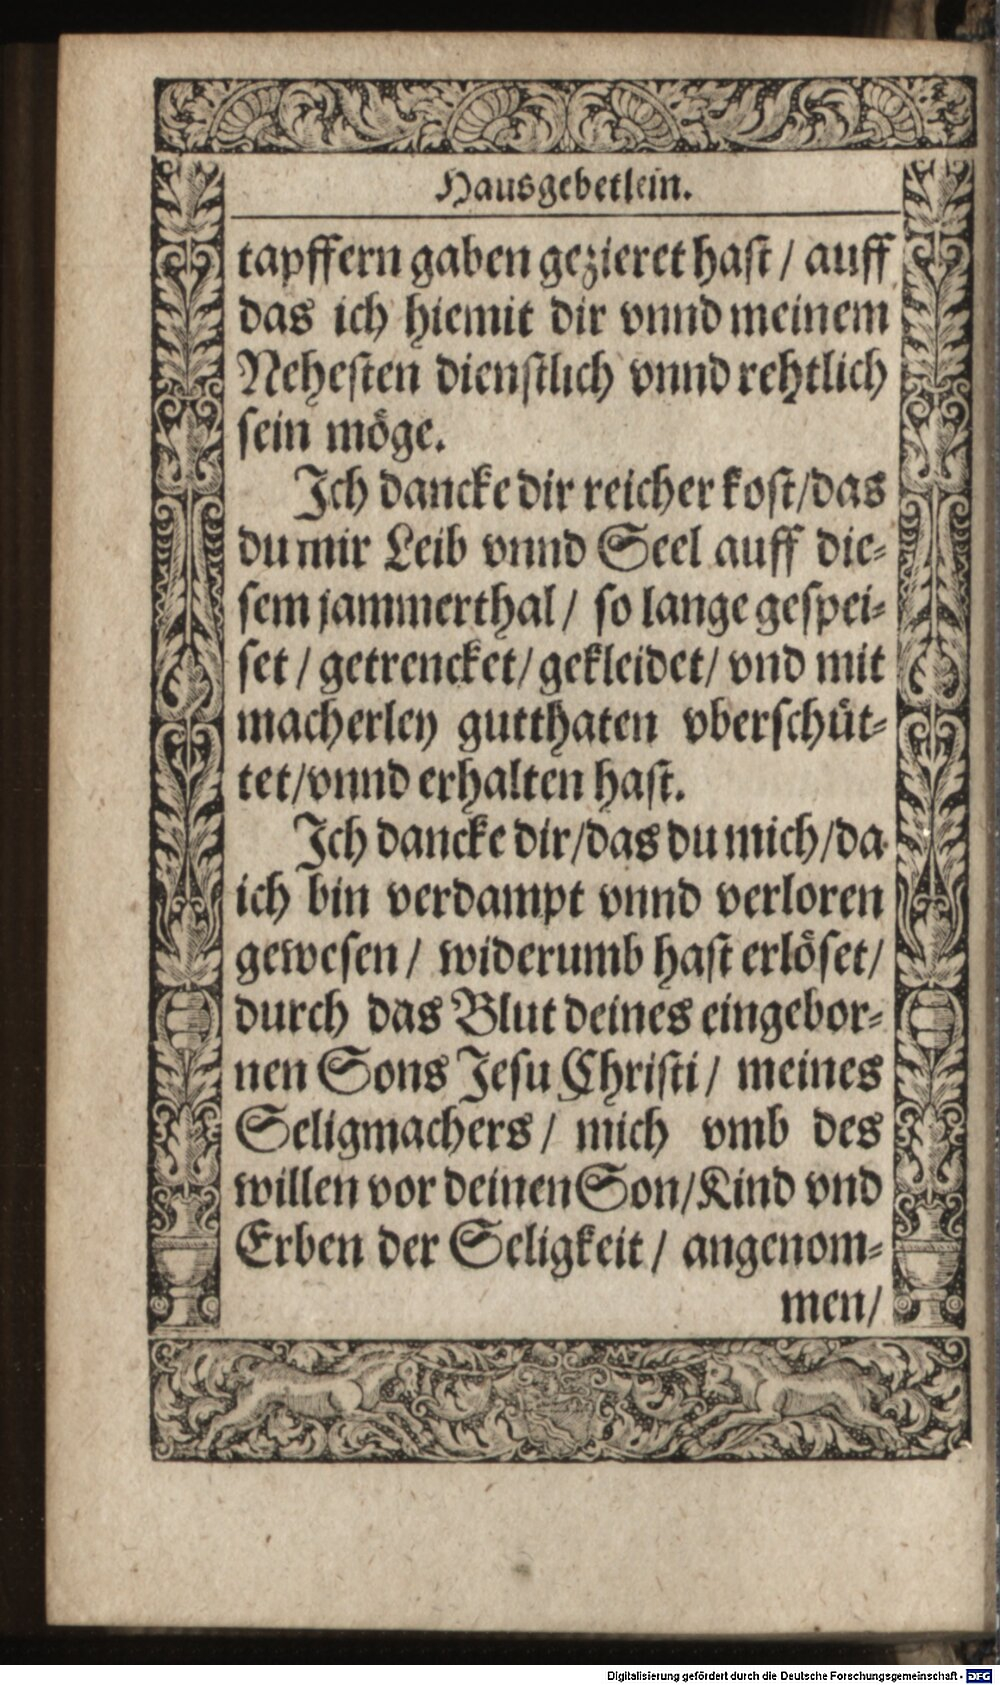 Hausgebetlein.
tapffern gaben gezieret hast / auff
das ich hiemit dir vnnd meinem
Nehesten dienstlich vnnd rehtlich
sein möge.
Ich dancke dir reicher kost/das
du mir Leib vnnd Seel auff die⸗
sem jammerthal / so lange gespei⸗
set / getrencket/ gekleidet/ vnd mit
macherley gutthaten vberschüt⸗
tet/vnnd erhalten hast.
Ich dancke dir/das du mich/da
ich bin verdampt vnnd verloren
gewesen / widerumb hast erlöset/
durch das Blut deines eingebor⸗
nen Sons Jesu Christi / meines
Seligmachers / mich vmb des
willen vor deinen Son/Kind vnd
Erben der Seligkeit / angenom⸗
men/
Digitalisierung gefördert durch die Deutsche Forschungsgemeinschaft - DFG